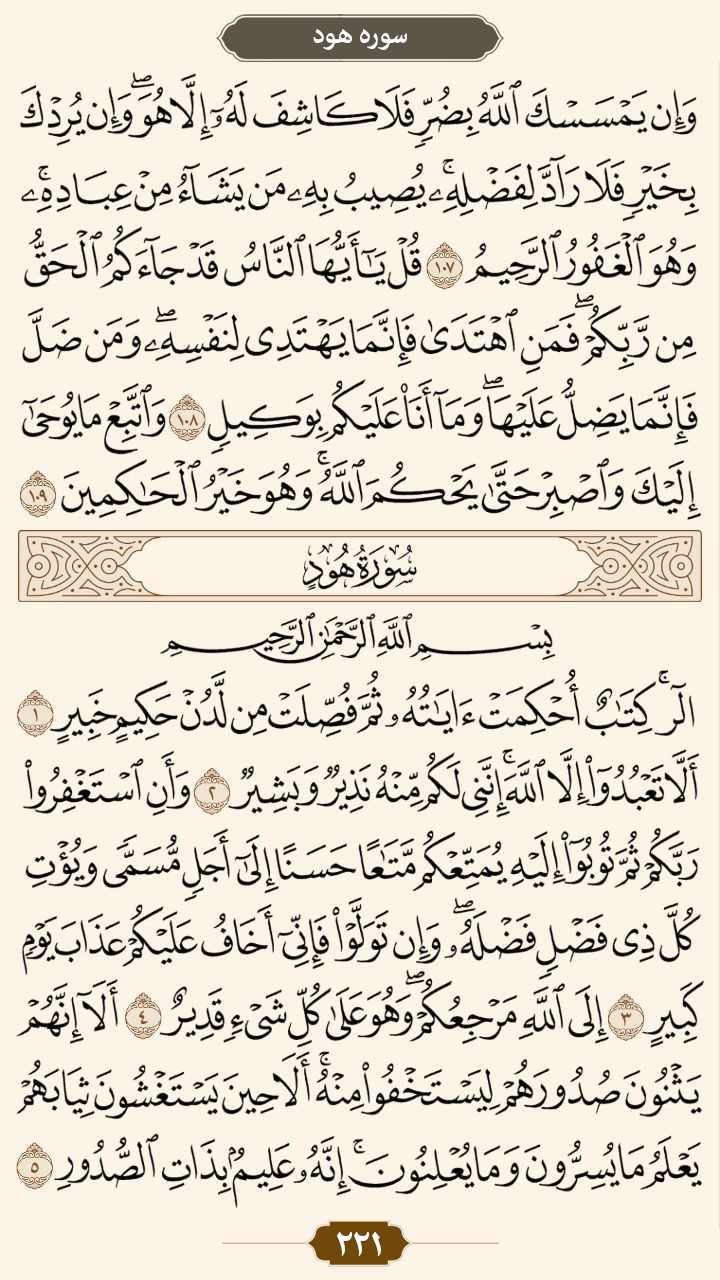 سوره هود
وَإِن يَمْسَسْكَ ٱللَّهُ بِضُرٍّ فَلَا كَاشِفَ لَهُۥٓ إِلَّا هُوَۖ وَإِن يُرِدْكَ
بِخَيْرٍ فَلَا رَآدَّ لِفَضْلِهِۦۚ يُصِيبُ بِهِۦ مَن يَشَآءُ مِنْ عِبَادِهِۦۚ
وَهُوَ ٱلْغَفُورُ ٱلرَّحِيمُ ١٠٧ قُلْ يَـٰٓأَيُّهَا ٱلنَّاسُ قَدْ جَآءَكُمُ ٱلْحَقُّ
مِن رَّبِّكُمْۖ فَمَنِ ٱهْتَدَىٰ فَإِنَّمَا يَهْتَدِى لِنَفْسِهِۦۖ وَمَن ضَلَّ
فَإِنَّمَا يَضِلُّ عَلَيْهَاۖ وَمَآ أَنَا۠ عَلَيْكُم بِوَكِيلٍ ١٠٨ وَٱتَّبِعْ مَا يُوحَىٰٓ
إِلَيْكَ وَٱصْبِرْ حَتَّىٰ يَحْكُمَ ٱللَّهُۚ وَهُوَ خَيْرُ ٱلْحَـٰكِمِينَ ١٠٩
سُورَةُ هُودٍ
بِسْمِ ٱللَّهِ ٱلرَّحْمَـٰنِ ٱلرَّحِيمِ
الٓرۚ كِتَـٰبٌ أُحْكِمَتْ ءَايَـٰتُهُۥ ثُمَّ فُصِّلَتْ مِن لَّدُنْ حَكِيمٍ خَبِيرٍ ١
أَلَّا تَعْبُدُوٓا۟ إِلَّا ٱللَّهَۚ إِنَّنِى لَكُم مِّنْهُ نَذِيرٌ وَبَشِيرٌ ٢ وَأَنِ ٱسْتَغْفِرُوا۟
رَبَّكُمْ ثُمَّ تُوبُوٓا۟ إِلَيْهِ يُمَتِّعْكُم مَّتَـٰعًا حَسَنًا إِلَىٰٓ أَجَلٍ مُّسَمًّى وَيُؤْتِ
كُلَّ ذِى فَضْلٍ فَضْلَهُۥۖ وَإِن تَوَلَّوْا۟ فَإِنِّىٓ أَخَافُ عَلَيْكُمْ عَذَابَ يَوْمٍ
كَبِيرٍ ٣ إِلَى ٱللَّهِ مَرْجِعُكُمْۖ وَهُوَ عَلَىٰ كُلِّ شَىْءٍ قَدِيرٌ ٤ أَلَآ إِنَّهُمْ
يَثْنُونَ صُدُورَهُمْ لِيَسْتَخْفُوا۟ مِنْهُۚ أَلَا حِينَ يَسْتَغْشُونَ ثِيَابَهُمْ
يَعْلَمُ مَا يُسِرُّونَ وَمَا يُعْلِنُونَۚ إِنَّهُۥ عَلِيمٌۢ بِذَاتِ ٱلصُّدُورِ ٥
٢٢١